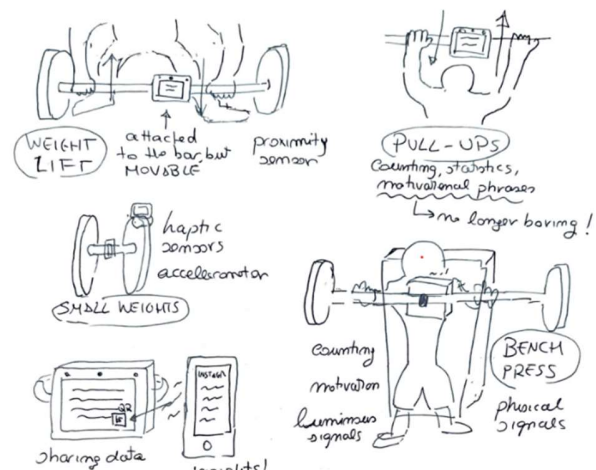 WEIGHT
LIFT
attached
to the bar, but
MOVABLE
proximity
sensor
PULL-UPS
counting, statistics,
motivational phrases
↳ no longer boring!
haptic
sensors
accelerometor
SMALL WEIGHTS
counting
motivation
luminous
signals
BENCH
PRESS
physical
signals
QR
sharing data